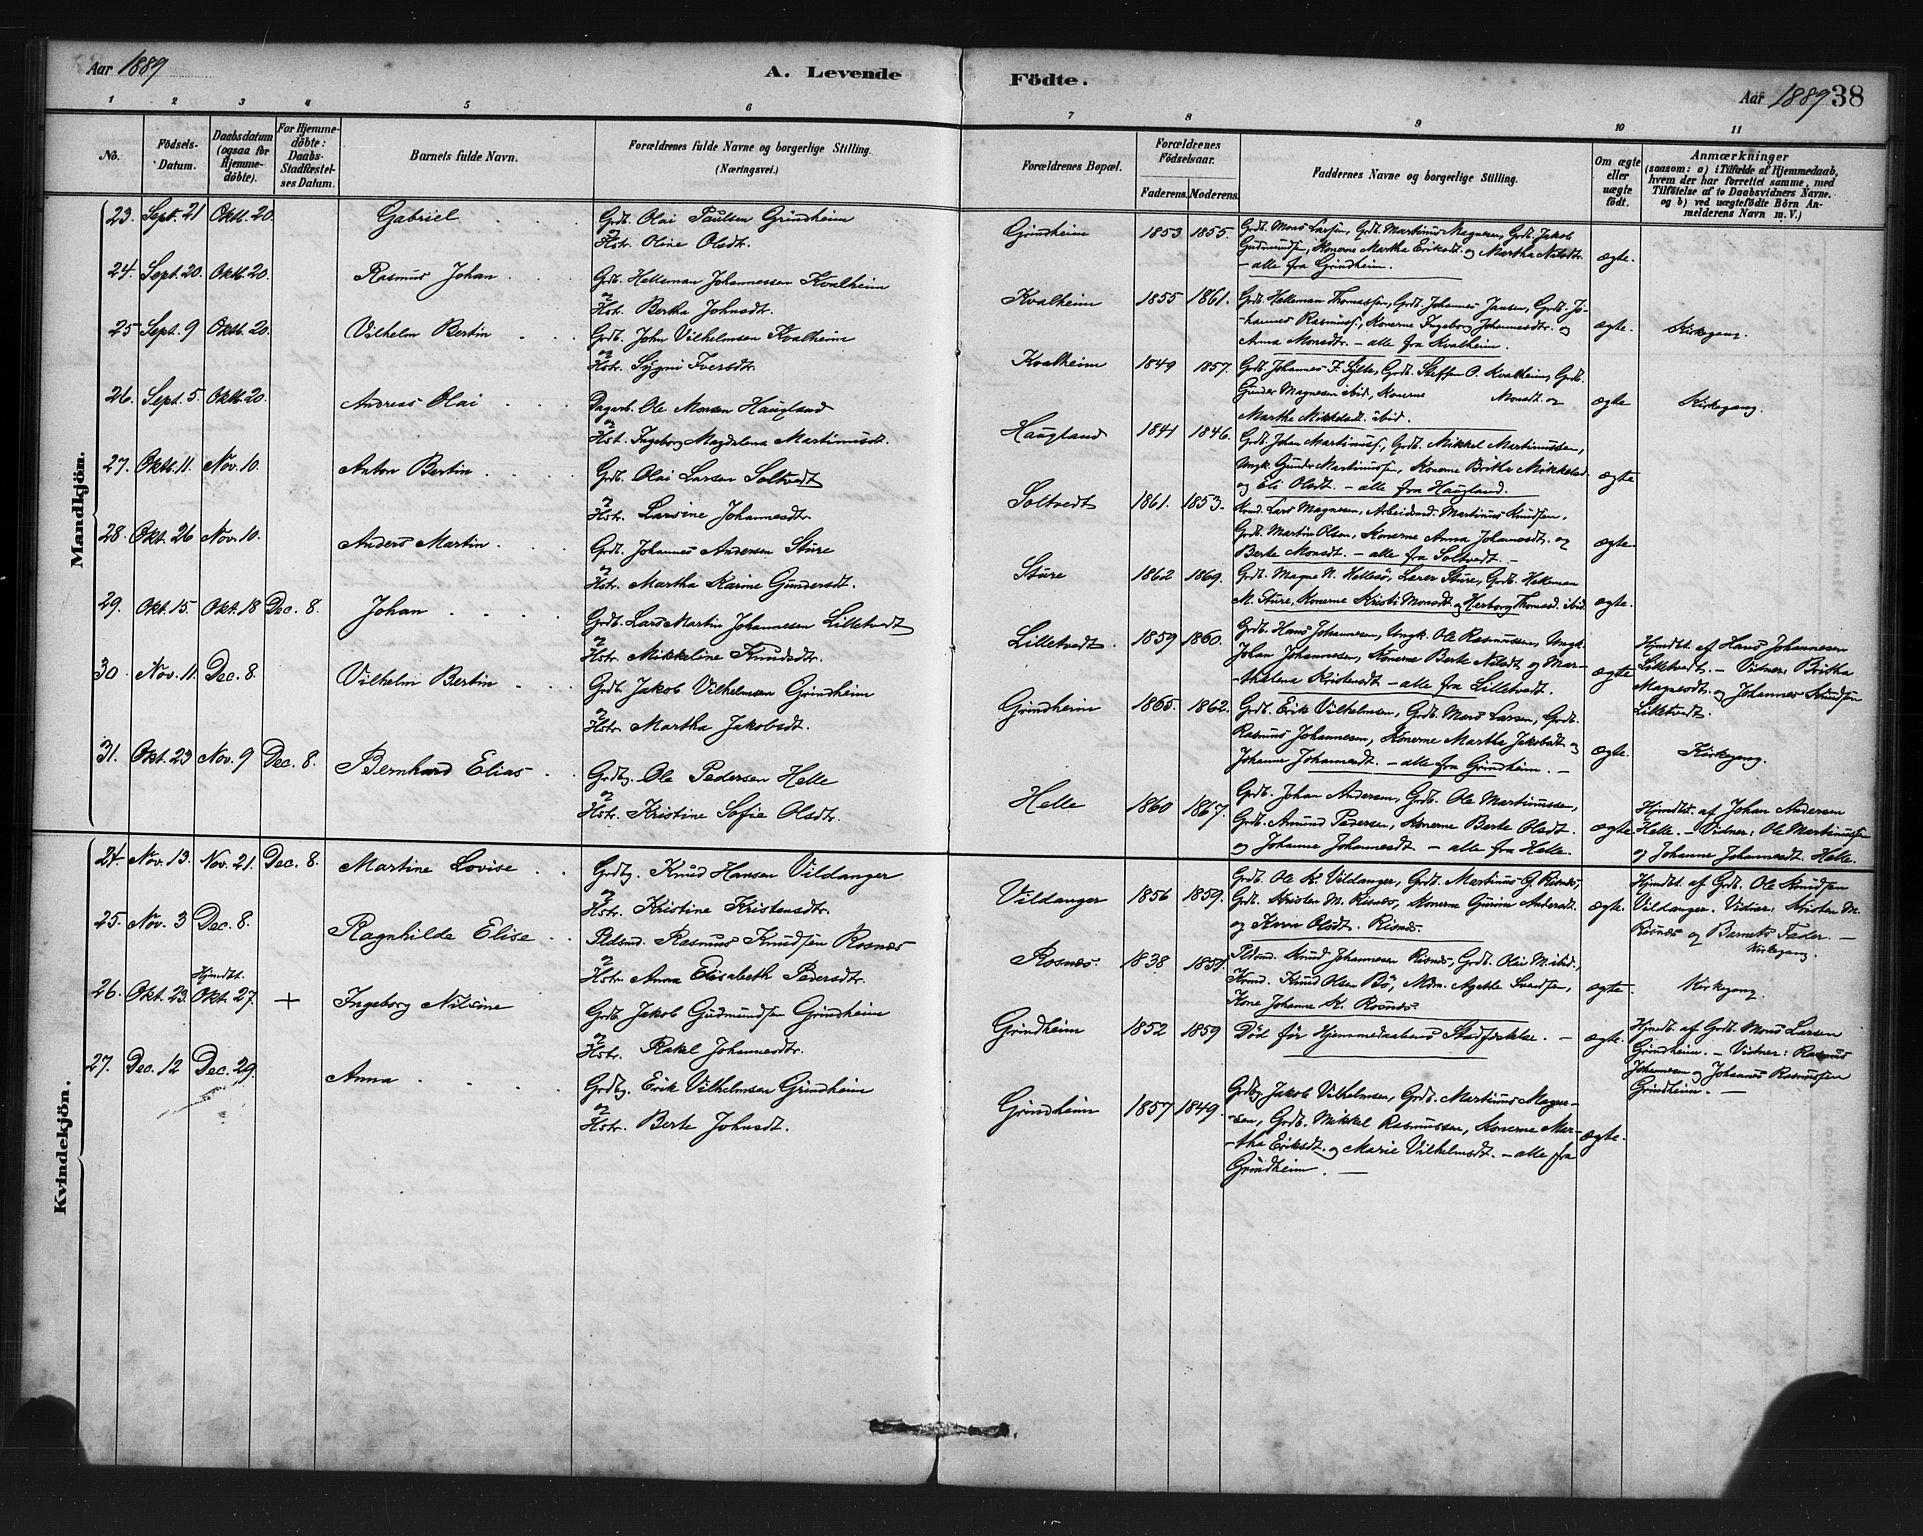 Aar 1889
A. Levende
Födte.
Aar 1889 38
1 2 3 4 5 6 7 8 9 10 11
No.
Födsels-Datum.
Daabsdatum (ogsaa for Hjemme-döbte).
For Hjemme-döbte: Daabs-Stadfæstel-ses Datum.
Barnets fulde Navn.
Forældrenes fulde Navne og borgerlige Stilling.
(Næringsvei.)
Forældrenes Bopæl.
Forældrenes Födselsaar.
Faderens. Moderens.
Faddernes Navne og borgerlige Stilling.
Om ægte eller uægte födt.
Anmærkninger
(saasom: a) i Tilfælde af Hjemmedaab,
hvem der har forrettet samme, med
Tilföielse af to Daabsvidners Navne.
og b) ved uægtefödte Börn An-
melderens Navn m. V.)
Mandkjön.
23. Sept. 21 Oktb. 20. Gabriel
Grdb. Olai Paulsen Grindheim
og
Hstr. Oline Olsdtr.
Grindheim 1853 1855.
Grdb. Mons Larsen, Grdb. Martinus Magnesen, Grdb. Jakob
Gudmundsen, Konerne Martha Eriksdt. og Martha
— alle fra Grindheim.
ægte.
24. Sept. 20. Oktb. 20. Rasmus Johan
Grdb. Helleman Johannessen Kvalheim
og
Hstr. Bertha Johnsdt.
Kvalheim 1855 1861.
Grdb. Helleman Thomassen, Grdb. Johannes Jansen, Grdb. Jo-
hannes Rasmuss., Konerne Ingeborg Johannesdtr. og
Anna Monsdtr. — alle fra Kvalheim.
ægte. Kirkegang.
25 Sept. 9 Oktb. 20. Vilhelm Bertin
Grdb. John Vilhelmsen Kvalheim
og
Hstr. Sygni Iversdtr.
Kvalheim 1849 1857.
Grdb. Johannes F. Sylte, Grdb. Steffen O. Kvalheim, Grdb.
Gunder Magnesen ibid., Konerne Monsdt. og
Marthe Mikkelsdt. ibid.
ægte Kirkegang.
26. Sept. 5. Oktb. 20. Andreas Olai
Dagarb. Ole Monsen Haugland
og
Hst. Ingeborg Magdalena Martinusdt.
Haugland 1841 1846.
Grdb. Johan Martinuss., Grdb. Mikkel Martinussen,
Ungk. Gunder Martinussen, Konerne Britha Mikkelsd.
og Eli Olsdt. — alle fra Haugland.
ægte
27. Oktb. 11. Nov. 10. Anton Bertin
Grdb. Olai Larsen Soltvedt
og
Hstr. Larsine Johannesdtr.
Soltvedt 1861. 1853.
Lars Magnesen, Arbeidsmd. Martinus Knudsen,
Grdb. Martin Olsen, Konerne Anna Johannesdt. og
Berte Monsdt. — alle fra Soltvedt.
ægte.
28. Okt. 26 Nov. 10. Anders Martin
Grdb. Johannes Andersen Sture
og
Hstr. Martha Karine Gundersdt.
Sture 1862 1869.
Grdb. Magne N. Hellesö, Lærer Sture, Grdb. Helleman
M. Sture, Konerne Kristi Monsdt. og Herborg Thomasd. ibid.
ægte.
29. Okt. 15. Okt. 18 Dec. 8. Johan
Grdb. Lars Martin Johannesen Lilletvedt
og
Hstr. Mikkeline Knudsdtr.
Lilletvedt. 1859 1860.
Grdb. Hans Johannesen, Ungk. Ole Rasmussen, Ungk.
Johan Johannesen, Konerne Berte og Mar-
thelena Kristensdt — alle fra Lilletvedt.
ægte
Hjmdbt. af Hans Johannesen
Lilletvedt. — Vidner: Britha
Magnesdt. og Johannes Knudsen
Lilletvedt.
30. Nov. 11. Dec. 8. Vilhelm Bertin
Grdb. Jakob Vilhelmsen Grindheim
og
Hstr. Martha Jakobsdt.
Grindheim 1865. 1862.
Grdb. Erik Vilhelmsen, Grdb. Mons Larsen, Grdb.
Rasmus Johannesen, Konerne Martha Jakobsdt. og
Johanne Johannesdt. — alle fra Grindheim. —
ægte. Kirkegang.
31. Okt. 23 Nov. 9 Dec. 8. Bernhard Elias
Grdbg. Ole Pedersen Helle
og
Hstr. Kristine Sofie Olsdtr.
Helle 1860 1867.
Grdb. Johan Andersen, Grdb. Ole Martinussen,
Grdb. Amund Pedersen, Konerne Berte Olsdt.
og Johanne Johannesdt. — alle fra Helle.
ægte.
Hjmdbt. af Johan Andersen
Helle. — Vidner: Ole Martinussen
og Johanne Johannesdt. Helle.
Kvindekjön.
24. Nov. 13. Nov. 21. Dec. 8. Martine Lovise
Grdbg. Knud Hansen Vildanger
og
Hstr. Kristine Kristensdtr.
Vildanger 1856 1859.
Grdb. Ole K. Vildanger, Grdb. Martinus G. Risnes,
Grdb. Kristen M. Risnes, Konerne Gurine Andersdt.
og Karen Olsdt. Risnes.
ægte.
Hjmdbt. af Grdb. Ole Knudsen
Vildanger. Vidner: Kristen M.
Risnes og Barnets Fader. —
Kirkegang.
25. Nov. 3 Dec. 8. Ragnhilde Elise
Pldsmd. Rasmus Knudsen Rosnes
og
Hstr. Anna Elisabeth Pedersdt.
Rosnes. 1838
Pldsmd. Knud Johannesen Risnes, Grdb. Olai M. ibid.,
Knud Olsen Bö, Mdm. Agathe
Kone Johanne K. Rosnes
ægte. Kirkegang.
26. Okt. 23. Hjmdbt. Okt. 27. + Ingeborg Nilsine
Grdb. Jakob Gudmundsen Grindheim
og
Hstr. Rakel Johannesdtr.
Grindheim 1852 1859
Död för Hjemmedaabens Stadfæstelse. —
ægte.
Hjmdbt. af Grdb. Mons Larsen
Grindheim. — Vidner: Rasmus
Johannesen og Johannes Rasmussen
Grindheim. —
27. Dec. 12 Dec. 29. Anna
Grdbg. Erik Vilhelmsen Grindheim
og
Hstr. Berte Johnsdt.
Grindheim 1857 1849.
Grdbg. Jakob Vilhelmsen, Grdb. Martinus Magne-
sen, Grdb. Mikkel Rasmussen, Konerne Mar-
tha Eriksdt. og Marie Vilhelmsdt. — alle fra
Grindheim. —
ægte.